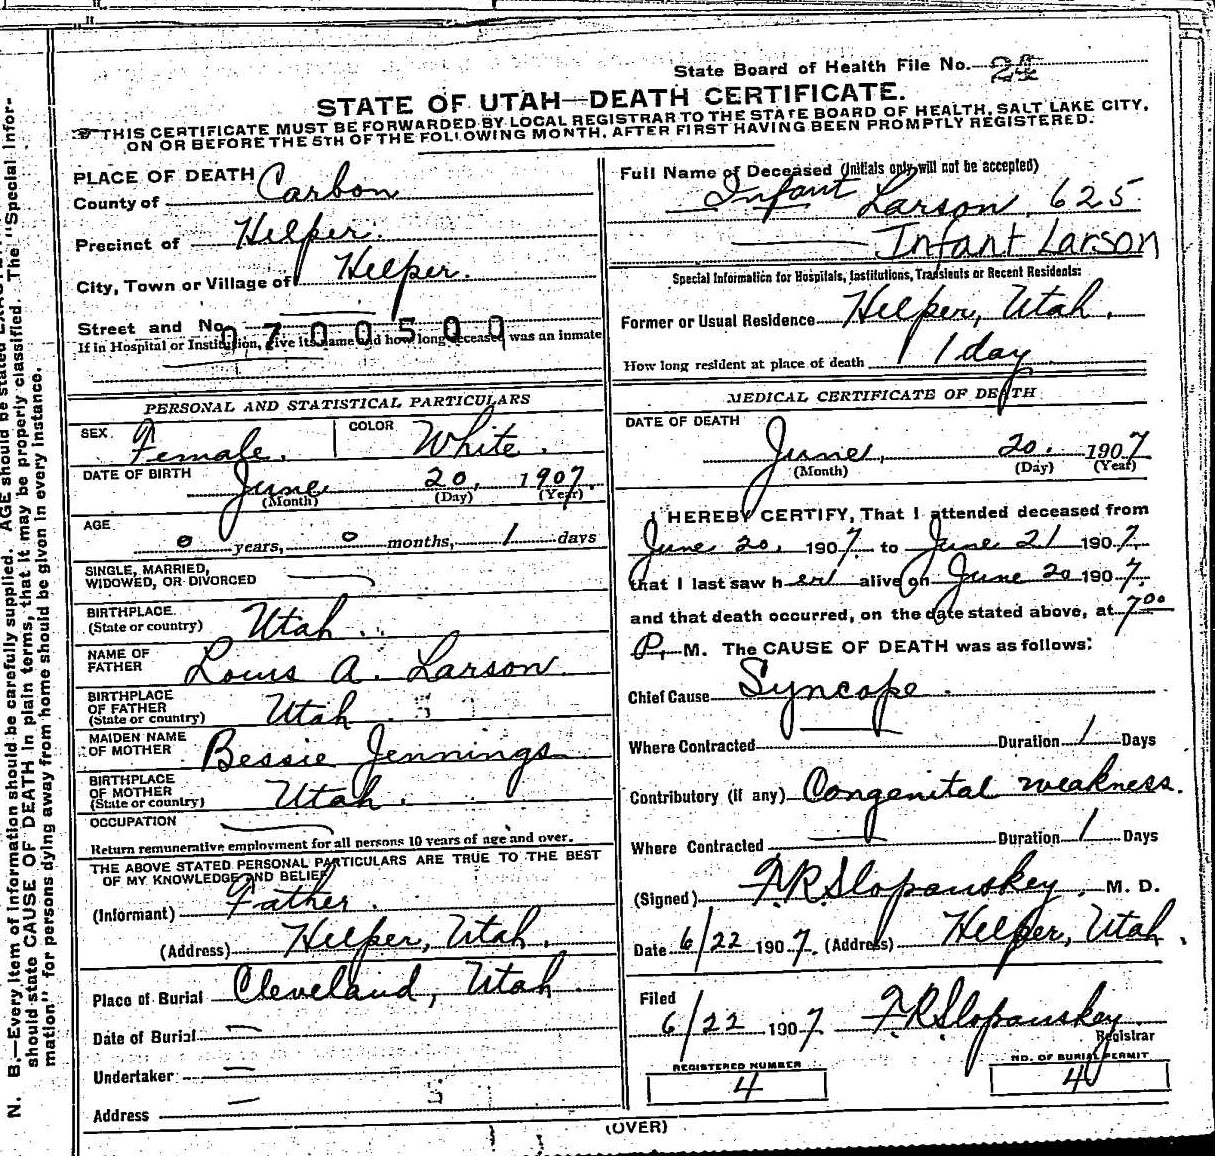 State Board of Health File No. 24
STATE OF UTAH—DEATH CERTIFICATE.
THIS CERTIFICATE MUST BE FORWARDED BY LOCAL REGISTRAR TO THE STATE BOARD OF HEALTH, SALT LAKE CITY,
ON OR BEFORE THE 5TH OF THE FOLLOWING MONTH, AFTER FIRST HAVING BEEN PROMPTLY REGISTERED.
PLACE OF DEATH
County of Carbon
Precinct of Helper.
City, Town or Village of Helper.
Street and No.
0700500
If in Hospital or Institution, give its name and how long deceased was an inmate
PERSONAL AND STATISTICAL PARTICULARS
SEX Female. COLOR White.
DATE OF BIRTH June 20, 1907.
(Month) (Day) (Year)
AGE 0 years, 0 months, 1 days
SINGLE, MARRIED,
WIDOWED, OR DIVORCED
BIRTHPLACE
(State or country) Utah.
NAME OF
FATHER Louis A. Larson.
BIRTHPLACE
OF FATHER
(State or country) Utah
MAIDEN NAME
OF MOTHER Bessie Jennings
BIRTHPLACE
OF MOTHER
(State or country) Utah.
OCCUPATION
Return remunerative employment for all persons 10 years of age and over.
THE ABOVE STATED PERSONAL PARTICULARS ARE TRUE TO THE BEST
OF MY KNOWLEDGE AND BELIEF
(Informant) Father.
(Address) Helper, Utah.
Place of Burial Cleveland, Utah.
Date of Burial
Undertaker
Address
Full Name of Deceased (Initials only will not be accepted)
Infant Larson 625
Infant Larson
Special Information for Hospitals, Institutions, Transients or Recent Residents:
Former or Usual Residence Helper, Utah.
How long resident at place of death 1 day
MEDICAL CERTIFICATE OF DEATH
DATE OF DEATH
June, 20. 1907
(Month) (Day) (Year)
I HEREBY CERTIFY, That I attended deceased from
June 20, 1907. to June 21 1907.
that I last saw her alive on June 20 1907.
and that death occurred, on the date stated above, at 7 00
P. M. The CAUSE OF DEATH was as follows:
Chief Cause Syncope.
Where Contracted Duration 1 Days
Contributory (if any) Congenital weakness.
Where Contracted Duration 1 Days
(Signed) F.R. Slopanskey, M. D.
Date 6/22 1907. (Address) Helper, Utah.
Filed
6/22 1907. F.R. Slopanskey.
Registrar
REGISTERED NUMBER
4
NO. OF BURIAL PERMIT
4
(OVER)
N. B.—Every item of information should be carefully supplied. AGE should be stated
should state CAUSE OF DEATH in plain terms, that it may be properly classified. The "Special Infor-
mation" for persons dying away from home should be given in every instance.